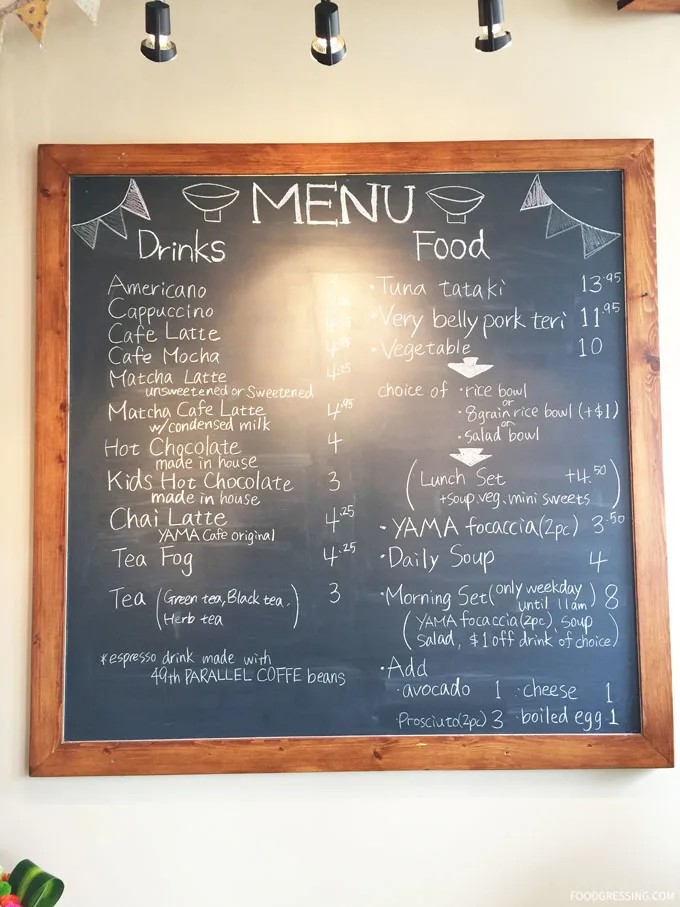 MENU
Drinks
Americano
Cappuccino
Cafe Latte
Cafe Mocha
Matcha Latte 4.25
unsweetened or Sweetened
Matcha Cafe Latte 4.95
w/condensed milk
Hot Chocolate 4
made in house
Kids Hot Chocolate 3
made in house
Chai Latte 4.25
YAMA Cafe original
Tea Fog 4.25
Tea (Green tea, Black tea, 3
Herb tea)
*espresso drink made with
49th PARALLEL COFFE beans
Food
·Tuna tataki 13.95
·Very belly pork teri 11.95
·Vegetable 10
choice of ·rice bowl
or
·8grain rice bowl (+$1)
or
·salad bowl
(Lunch Set +4.50
+soup.veg.mini sweets)
·YAMA focaccia(2pc) 3.50
·Daily Soup 4
·Morning Set(only weekday 8
until 11am)
(YAMA focaccia(2pc), soup
salad, $1 off drink of choice)
·Add
·avocado 1 ·cheese 1
·Prosciuto(2pc) 3 ·boiled egg 1
FOODGRESSING.COM